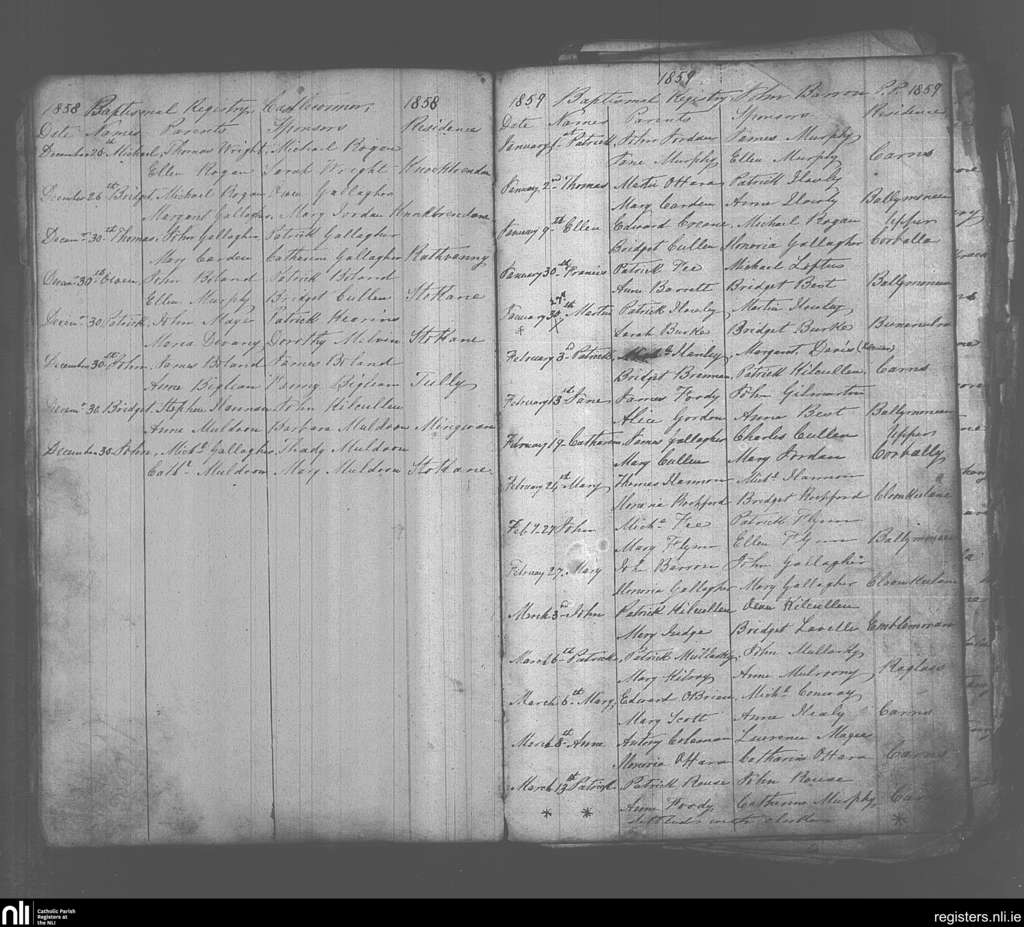 1858 Baptismal Registry, Castleconnor, 1858
Date Names Parents Sponsors Residence
December 26th Michael, Thomas Wright Michael Rogan
Ellen Rogan Sarah Wright
December 26th Bridget, Michael Rogan Owen Gallagher
Margaret Gallagher, Mary Jordan
Decemr 30th Thomas, John Gallagher Patrick Gallagher
Mary Carden Catherine Gallagher
Decemr 30th John Boland Patrick Boland
Ellen Murphy Bridget Cullen Stokane
Decemr 30, Patrick, John Patrick
Maria Devany Dorothy Stokane
December 30th John, James Boland James Boland
Anne Biglean Penny Biglean Tully
Decemr 30 Bridget, Stephen Hannon John Kilcullen
Anne Muldoon Barbara Muldoon
December 30 John, Michl Gallagher, Thady Muldoon
Cathe Muldoon Mary Muldoon Stokane
1859
1859 Baptismal Registry John Barron P.P. 1859
Date Names Parents Sponsors Residence
January 1st Patrick John Jordan James Murphy
Jane Murphy Ellen Murphy Carns
January 2nd Thomas Martin O'Hara Patrick Hawly
Mary Carden Anne Ballymoneen
January 9th Ellen Edward Michael Rogan Upper
Bridget Cullen Honoria Gallagher Corballa
January 30th Francis Patrick Fee Michael Loftus
Anne Barrett Bridget Best Ballymoneen
27th
January 30th Martin Patrick Hawley Martin Hawley
* Sarah Burke Bridget Burke
February 3d Patrick Hanley, Margaret Davis
Bridget Brennan, Patrick Kilcullen, Carns
February 13th Jane James Foody John Gilmartin
Alice Gordon Anna Best Ballymoneen
February 19 Catharine James Gallagher Charles Cullen Upper
Mary Cullen Mary Jordan Corbally
February 24th Mary Thomas Hannon Michl Hannon
Honoria Rochford Bridget Rochford
Feby 27 John Michl Fee Patrick Flynn
Mary Flynn Ellen Flynn Ballymoneen
February 27 Mary Jn Barron John Gallagher
Honoria Gallagher Mary Gallagher
March 3d John Patrick Kilcullen Dean Kilcullen
Mary Judge Bridget Lavelle
March 6th Patrick, Patrick Mullarky, John Mullarky
Mary Kilroy Anne Mulroony
March 6th Mary, Edward O'Brien Michl Conway
Mary Scott Anne Healy Carns
March 8th Anne Antony Coleman Laurence Magee
Honoria O'Hara Catharine O'Hara Carns
March 13th Patrick Patrick Rouse John Rouse
* * Anne Foody Catharine Murphy Carns
settled with *
nli
Catholic Parish
Registers at
the NLI
registers.nli.ie